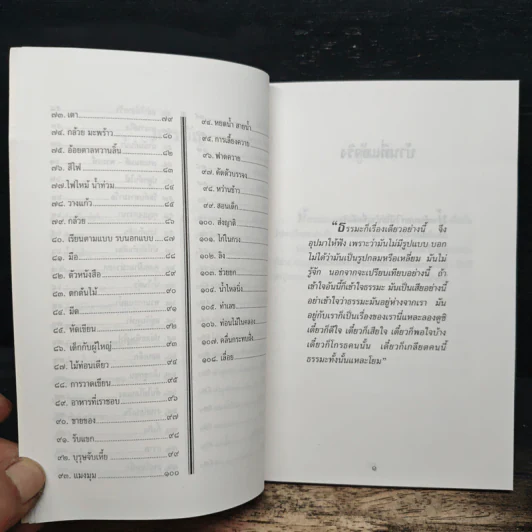 ๗๓. เตา ๗๙
๗๔. กล้วย มะพร้าว ๘๐
๗๕. อ้อยตาลหวานลิ้น ๘๒
๗๖. สีไฟ ๘๓
๗๗. ไฟไหม้ น้ำท่วม ๘๔
๗๘. วางแก้ว ๘๕
๗๙. กล้วย ๘๖
๘๐. เรียนตามแบบ รบนอกแบบ ๘๗
๘๑. มือ
๘๒. ตัวหนังสือ
๘๓. ตกต้นไม้
๘๔. มีด
๘๕. หัดเขียน
๘๖. เด็กกับผู้ใหญ่
๘๗. ไม้ท่อนเดียว
๘๘. การวาดเขียน ๙๕
๘๙. อาหารที่เราชอบ ๙๖
๙๐. ขายของ ๙๗
๙๑. รับแขก ๙๘
๙๒. บุรุษจับเหี้ย ๙๙
๙๓. แมงมุม ๑๐๐
๙๔. หยดน้ำ สายน้ำ
๙๕. การเลี้ยงควาย
๙๖. ฟาดควาย
๙๗. คัดตัวบรรจง
๙๘. หว่านข้าว
๙๙. สอนเด็ก
๑๐๐. ส่งญาติ
๑๐๑. ไก่ในกรง
๑๐๒. อิง
๑๐๓. ช่วยยก
๑๐๔. น้ำไหลนิ่ง
๑๐๕. ทำเลข
๑๐๖. ท่อนไม้ในคลอง
๑๐๗. คลื่นกระทบฝั่ง
๑๐๘. เลื่อย
“ธรรมะก็เรื่องเดียวอย่างนี้ จึง
อุปมาให้ฟัง เพราะว่ามันไม่มีรูปแบบ บอก
ไม่ได้ว่ามันเป็นรูปกลมหรือเหลี่ยม มันไม่
รู้จัก นอกจากจะเปรียบเทียบอย่างนี้ ถ้า
เข้าใจอันนี้ก็เข้าใจธรรมะ มันเป็นเสียอย่างนี้
อย่าเข้าใจว่าธรรมะมันอยู่ห่างจากเรา มัน
อยู่กับเราก็เป็นเรื่องของเรานี่แหละลองดูซิ
เดี๋ยวก็ดีใจ เดี๋ยวก็เสียใจ เดี๋ยวก็พอใจบ้าง
เดี๋ยวก็โกรธคนนั้น เดี๋ยวก็เกลียดคนนี้
ธรรมะทั้งนั้นแหละโยม”